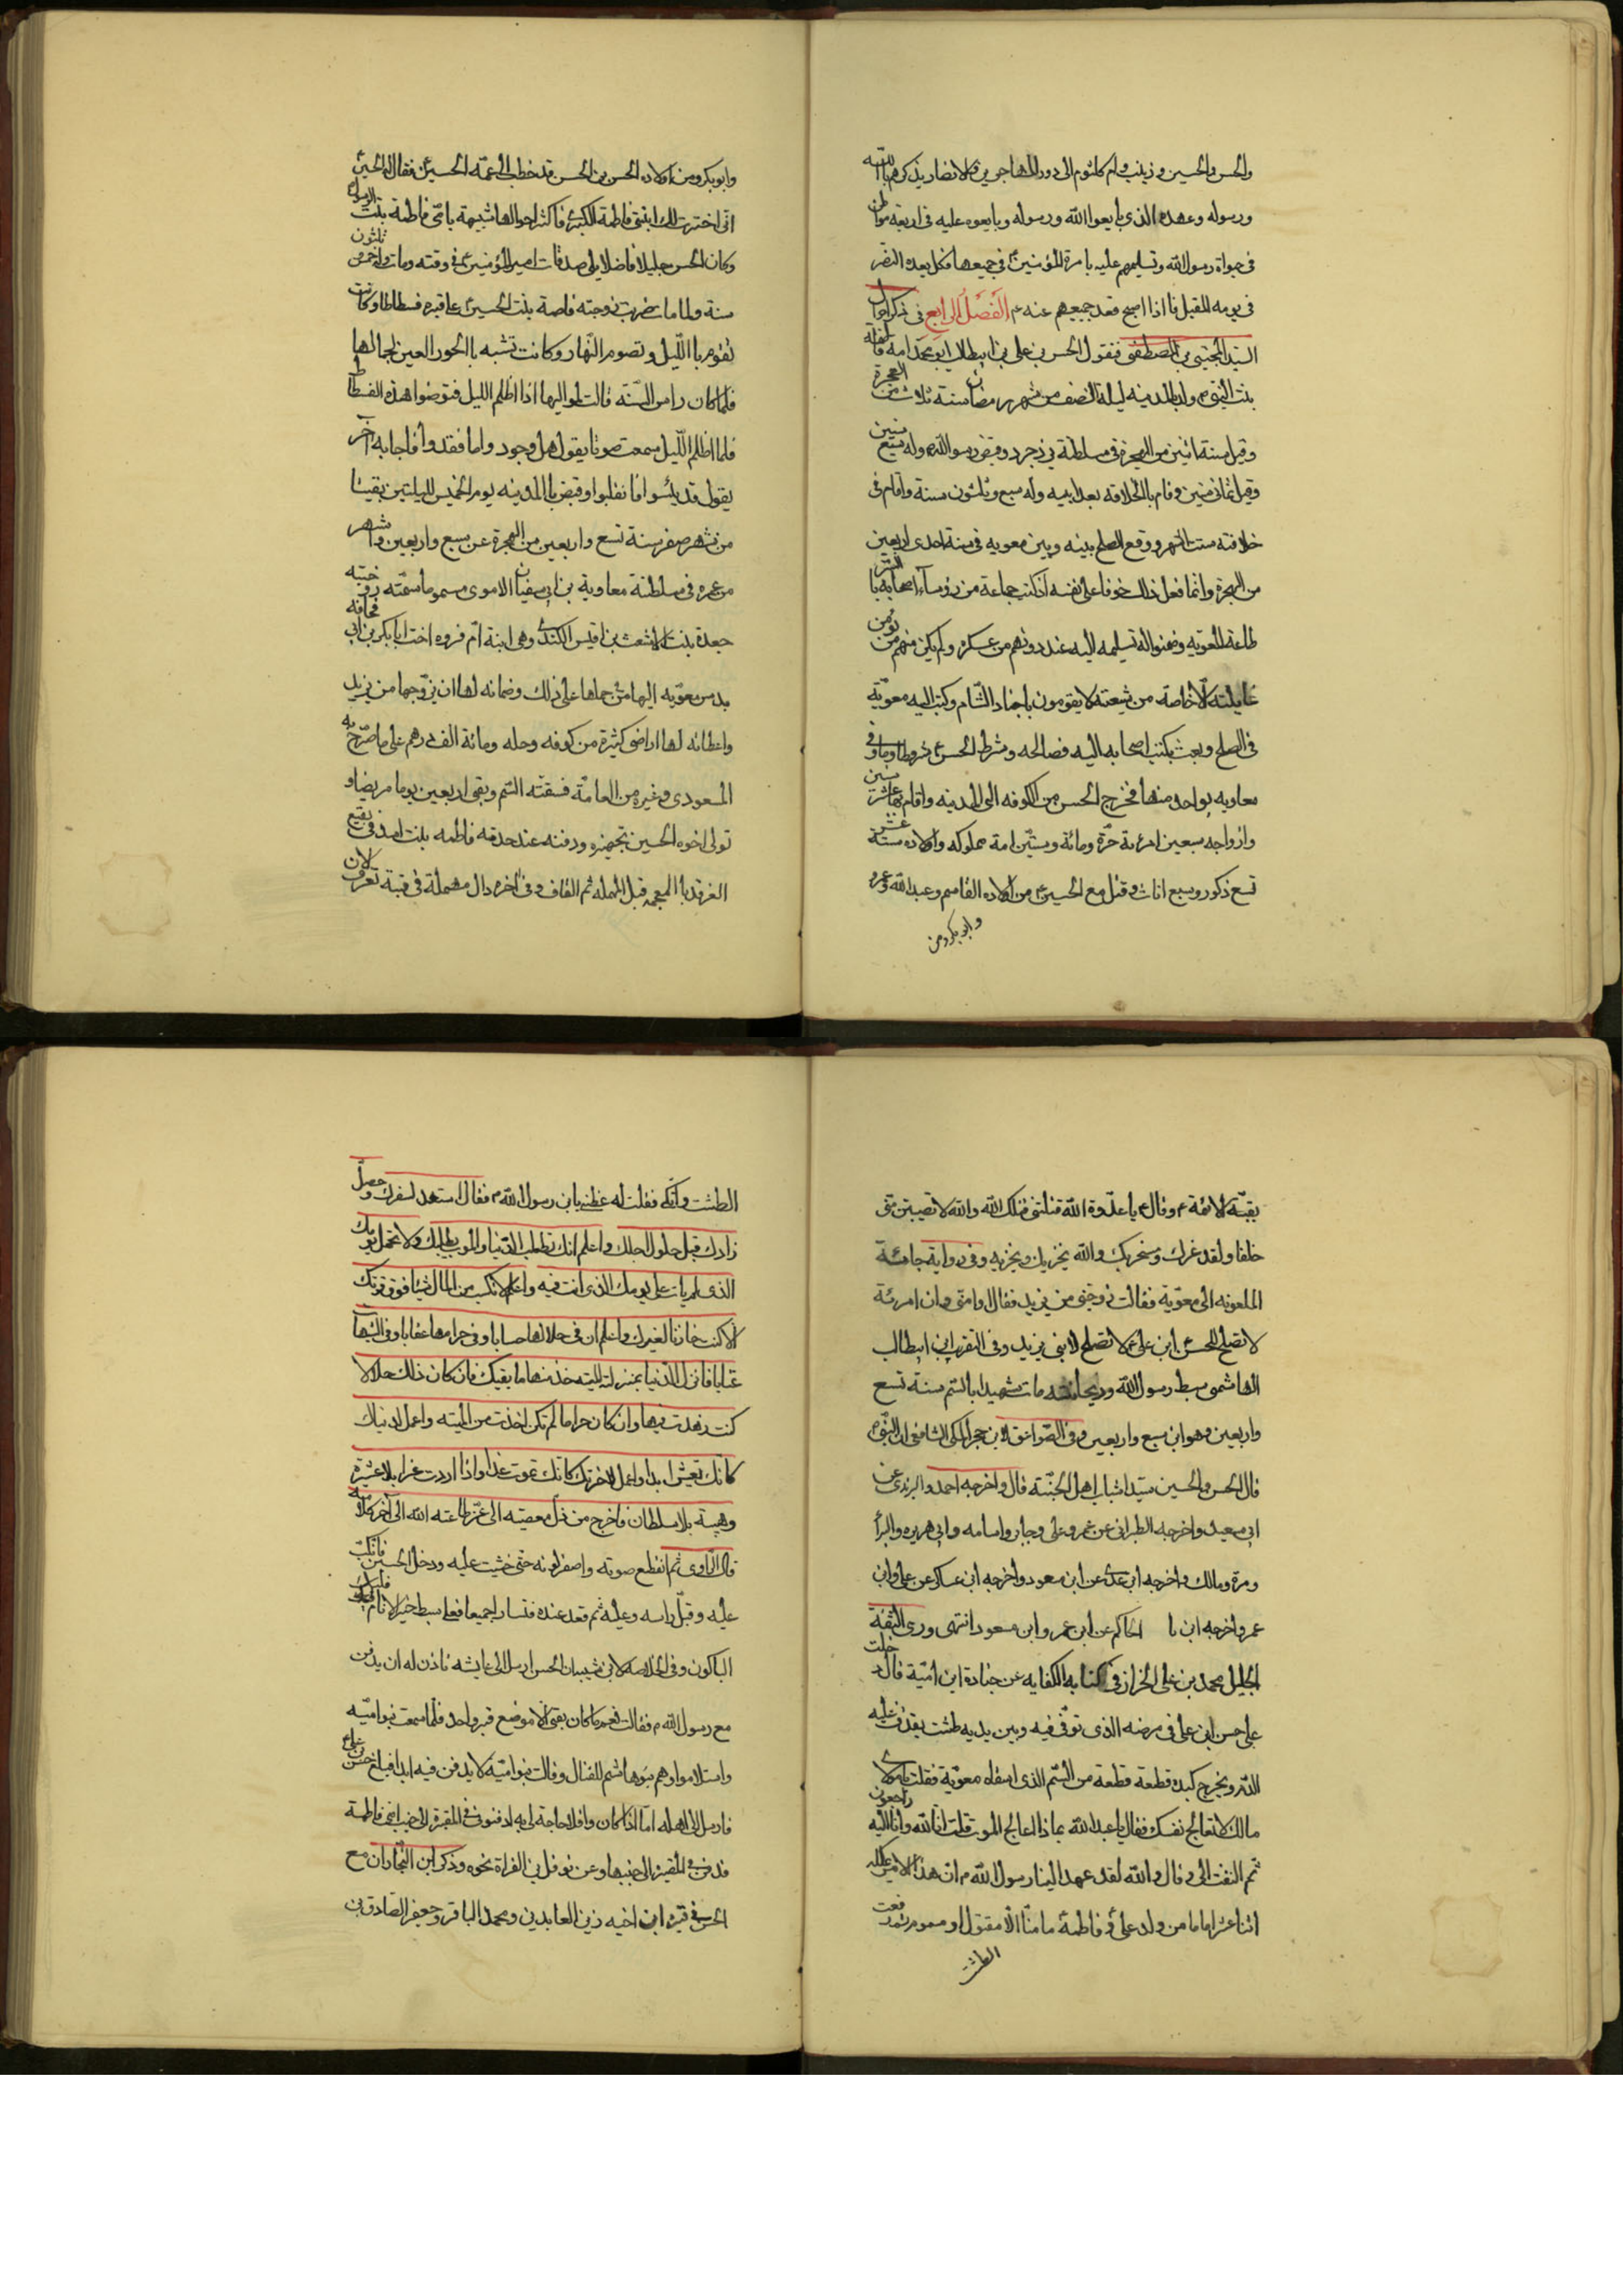 والحسن والحسين وزينب وام كلثوم الى دور المهاجرين والانصار يذكرهم بالله
ورسوله وعهده الذى بايعوا الله ورسوله وبايعوه عليه فى اربعة مواطن
فى حياة رسول الله وتسليمهم عليه بامرة المؤمنين فى جميعها فكل يعده النصر
فى يومه المقبل فاذا اصبح قعد جميعهم عنه م الفصل الرابع فى ذكر احوال
السيد المجتبى بن المصطفى فنقول الحسن بن على بن ابيطالب ابو محمد امه فاطمة
بنت النبى ولد بالمدينه ليلة النصف من شهر رمضان سنة ثلاث من الهجرة
وقيل سنة اثنين من الهجرة فى سلطنة يزدجرد وقبض رسول الله وله سبع سنين
وقيل ثمانى سنين وقام بالخلافه بعد ابيه وله سبع وثلثون سنة واقام فى
خلافته ستت اشهر ووقع الصلح بينه وبين معويه فى سنة احدى اربعين
من الهجرة وانما فعل ذلك خوفا على نفسه اذ كتب جماعة من رؤساء اصحابه بالسر
طاعة المعويه وضمنوا له تسليمه اليه عند دونهم من عسكره ولم يكن منهم من يؤمن
غايلته الا خاصة من شيعته لا يقومون باجناد الشام وكتب اليه معوية
فى الصلح وبعث بكتب اصحابه اليه فصالحه وشرط الحسن ع شروطا وما وفى
معاويه بواحد منها فخرج الحسن من الكوفه الى المدينه واقام بها عشر سنين
وازواجه سبعين امرئة حرة ومائة وستين امة مملوكه واولاده ستة عشر
تسع ذكور وسبع اناث وقتل مع الحسين ع من اولاده القاسم وعبد الله وعمر
وابو بكر ومن
وابو بكر ومن اولاده الحسن بن الحسن قد خطب الى عمه الحسين ع فقال له الحسين
انى اخترت لك ابنتى فاطمة الكبرى فاكثر احوالها شبيهة بامى فاطمة بنت الرسول
وكان الحسن جليلا فاضلا يلى صدقات امير المؤمنين ع فى وقته ومات وله خمس ثلثون
سنة ولما مات ضربت زوجته فاطمة بنت الحسين ع على قبره فسطاطا وكانت
تقوم بالليل وتصوم النهار وكانت تشبه بالحور العين لجمالها
فلما كان راس السنة قالت لمواليها اذا اظلم الليل فقوضوا هذه الفسطاط
فلما اظلم الليل سمعت صوتا يقول هل وجدوا ما فقدوا فاجابه آخر
يقول قد يئسوا فانقلبوا وقبض بالمدينه يوم الخميس لليلتين بقيتا
من شهر صفر سنة تسع واربعين من الهجرة عن سبع واربعين واشهر
من عمره فى سلطنة معاوية بن ابى سفيان الاموى مسموما سمته زوجته
جعدة بنت الاشعث بن قيس الكندى وهى ابنة ام فروه اخت ابا بكر بن ابى قحافه
بدس معويه اليها من حملها على ذلك وضمانه لها ان يزوجها من يزيد
واعطائه لها اراضى كثيرة من كوفه وحله ومائة الف درهم على ما صرح به
المسعودى وغيره من العامة فسقته السم وبقى اربعين يوما مريضا و
تولى اخوه الحسين تجهيزه ودفنه عند جدته فاطمه بنت اسد فى بقيع
الغرقد بالمعجمه قبل المهمله ثم القاف وفى اخره دال مهملة فى قبة تعرف الان
بقبة الائمة ع وقال ع يا عدوة الله قتلتنى قتلك الله والله لا تصيبين منى
خلفا ولقد غرك وسخر بك والله يخزيك ويخزيه وفى رواية جائت
الملعونه الى معوية فقالت زوجنى من يزيد فقال وامتى وان امرئة
لا تصلح للحسن ابن على ع لا تصلح لابنى يزيد وفى التقريب ابن ابيطالب
الهاشمى سبط رسول الله وريحانته مات شهيدا بالسم سنة تسع
واربعين وهو ابن سبع واربعين وفى الصواعق لابن حجر المكى الشافعى ان النبى
قال الحسن والحسين سيدا شباب اهل الجنة قال واخرجه احمد والترمذى عن
ابى سعيد واخرجه الطبرانى عن عمر وعلى وجابر واسامه وابى هريره والبراء
ومرة ومالك واخرجه ابن عدى عن ابن مسعود واخرجه ابن عساكر عن على وابن
عمر واخرجه ابن ما الحاكم عن ابن عمر وابن مسعود انتهى وروى الثقة
الجليل محمد بن على الخزاز فى كتابه الكفايه عن جنادة ابن امية قال دخلت
على حسن ابن على فى مرضه الذى توفى فيه وبين يديه طشت يقذف عليه
الدم ويخرج كبده قطعة قطعة من السم الذى اسقاه معوية فقلت يا مولاى
مالك لا تعالج نفسك فقال يا عبد الله بماذا اعالج الموت قلت انا لله وانا اليه راجعون
ثم التفت الى وقال والله لقد عهد الينا رسول الله م ان هذا الامر يملكه
اثنا عشر اماما من ولد على ع وفاطمة ما منا الا مقتول او مسموم ثم رفعت
الطشت
الطشت واتكى فقلت له عظنى يابن رسول الله م فقال استعد لسفرك وحصل
زادك قبل حلول اجلك واعلم انك تطلب الدنيا والموت يطلبك ولا تحمل هم يومك
الذى لم يات على يومك الذى انت فيه واعلم لا تكسب من المال شيئا فوق قوتك
الا كنت خازنا لغيرك واعلم ان فى حلالها حسابا وفى حرامها عقابا وفى الشبهات
عتابا فانزل الدنيا بمنزلة الميته خذ منها ما يقيك فان كان ذلك حلالا
كنت زهدت فيها وان كان حراما لم تكن اخذت من الميته واعمل لدنياك
كانك تعيش ابدا واعمل لاخرتك كانك تموت غدا واذا اردت عزا بلا عشيرة
وهيبة بلا سلطان فاخرج من ذل معصيه الى عز طاعته الله الى آخر كلامه
قال الراوى ثم انقطع صوته واصفر لونه حتى خشيت عليه ودخل الحسين فانكب
عليه وقبل راسه وعينيه ثم قعد عنده فتسارا جميعا فعلى سبط خير الانام فليبك
الباكون وفى الخلاصه لابن شيبان الحسن ارسل الى عايشه فاذن له ان يدفن
مع رسول الله م فقالت نعم ما كان بقى الا موضع قبر واحد فلما سمعت بنو اميه
واستلاموا وهم بنو هاشم للقتال وقالت بنو اميه لا يدفن فيه ابدا فبلغ حسن بن على ع
فارسل الى اهله اما اذا كان وافلا حاجة لى به ادفنونى فى المقبرة الى جنب امى فاطمة
فدفن فى المقبرة الى جنبها وعن نوفل بن الفراة نحوه وذكر ابن النجار ان مع
الحسن فى قبره ابن اخيه زين العابدين ومحمد الباقر وجعفر الصادق بن